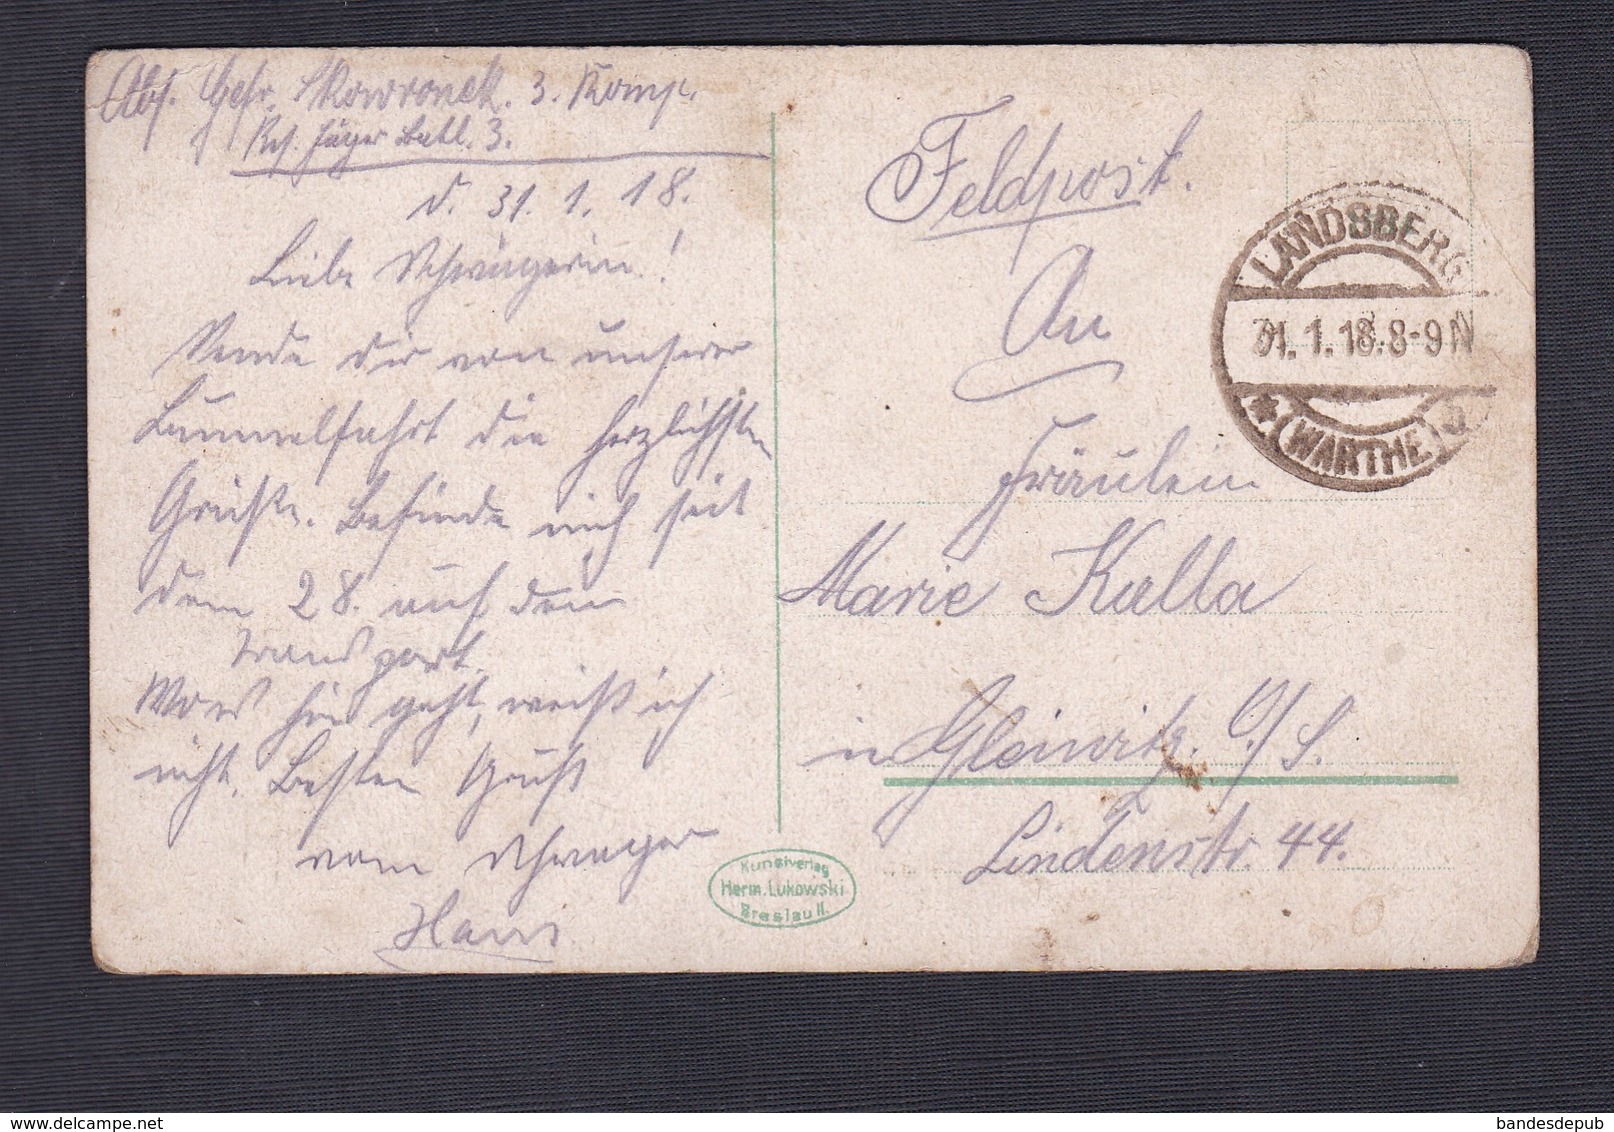 Abs. Gefr. Skowronek. 3. Komp.
Res. Jäger Batl. 3.
d. 31. 1. 18.
Liebe Schwägerin!
Sende dir von unserer
Bummelfahrt die herzlichsten
Grüße. Befinde mich seit
dem 28. auf dem
Transport.
Wo es hin geht, weiß ich
nicht. Besten Gruß
vom Schwager
Hans
Feldpost.
An
Fräulein
Marie Kalla
in Gleiwitz. O/S.
Lindenstr. 44.
LANDSBERG
31.1.18.8-9N
* (WARTHE)
Kunstverlag
Herm. Lukowski
Breslau II.
delcampe.net
bandesdepub